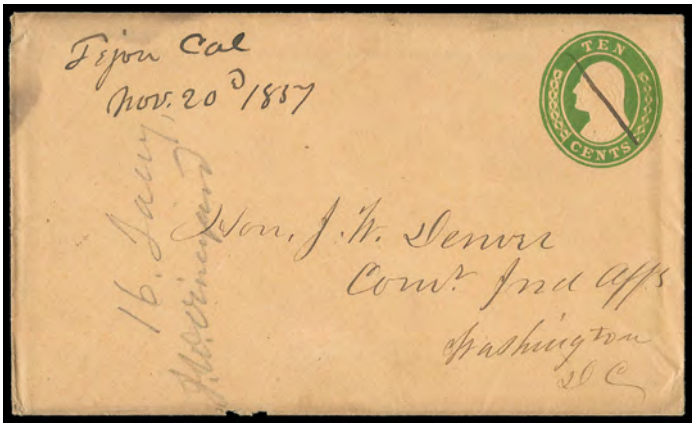 Tejon Cal
Nov. 20 1857
TEN
CENTS
Hon. J. W. Denver
Comr. Ind Affs
Washington
D C
16. Jany,